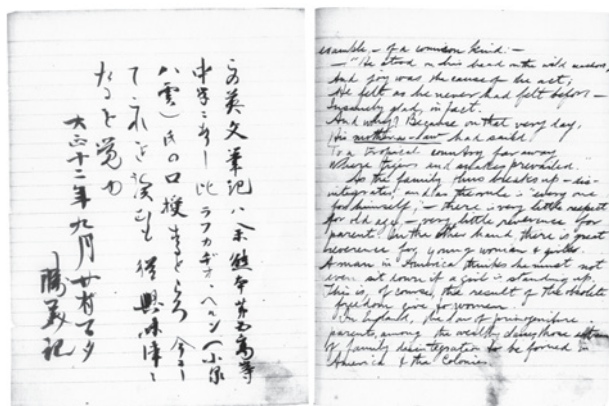 右英文筆記ハ余熊本第五高等
中学ニありし比ラフカヂオ・ヘルン(小泉
八雲)氏の口授せるところ今ニし
てこれを讀むも猶興味津々
たるを覚ゆ
大正十二年九月廿
勝美記
example, - of a comison kind: -
- "He stood on his head on the wild seashore,
And joy was the cause of the act;
He felt as he never had felt before -
Insanely glad, in fact.
And why? Because on that very day,
His mother-in-law had sailed
To a tropical country far away
Where tigers and snakes prevailed."
As the family thus breaks up - dis-
integrates, and as the rule is "every one
for himself", - there is very little respect
for old age, - very little reverence for
parents. On the other hand there is great
reverence for young women & girls.
A man in America thinks he must not
even sit down if a girl is standing up.
This is, of course, the result of the absolute
freedom given to women.
In England, the law of primogeniture
parents, among the wealthy class, those
of family desintegration to be formed in
America & the Colonies.